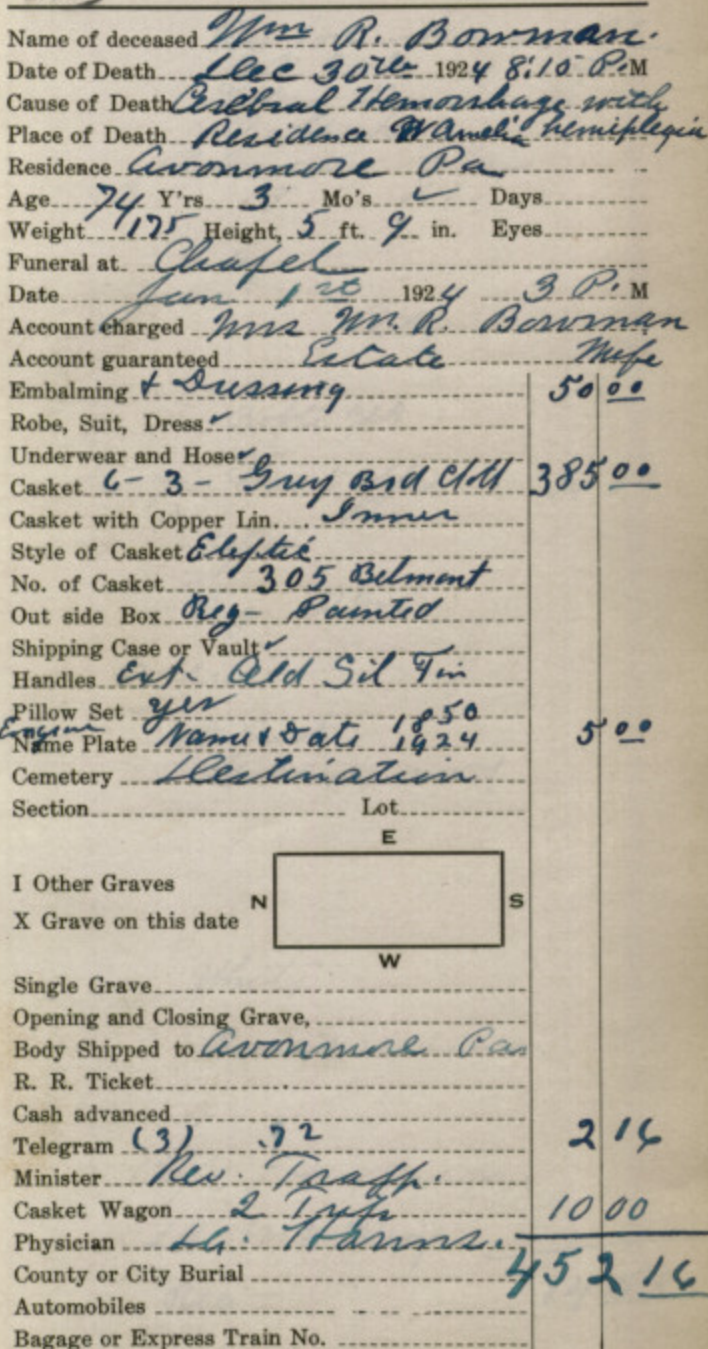 Name of deceased Wm R. Bowman.
Date of Death Dec 30th 1924 8:10 P.M
Cause of Death Cerebral Hemorrhage with
Place of Death Residence W Amelia hemiplegia
Residence Avonmore Pa
Age 74 Y'rs 3 Mo's ✓ Days
Weight 175 Height, 5 ft. 9 in. Eyes
Funeral at Chapel
Date Jan 1st 1924 3 P. M
Account charged Mrs Wm. R. Bowman
Account guaranteed Estate Wife
Embalming & Dressing 50 00
Robe, Suit, Dress ✓
Underwear and Hose ✓
Casket 6-3- Grey Brd Cloth 385 00
Casket with Copper Lin. Inner
Style of Casket Eleptic
No. of Casket 305 Belmont
Out side Box Reg- Painted
Shipping Case or Vault ✓
Handles Ext- Old Sil Tin
Pillow Set yes 1850
Engrave Name Plate Name & Date 1924 5 00
Cemetery Destination
Section Lot
E
I Other Graves
N S
X Grave on this date
W
Single Grave
Opening and Closing Grave,
Body Shipped to Avonmore Pa
R. R. Ticket
Cash advanced
Telegram (3) .72 2 16
Minister Rev.
Casket Wagon 2 Trip 10 00
Physician Dr. Harms.
County or City Burial 452 16
Automobiles
Bagage or Express Train No.